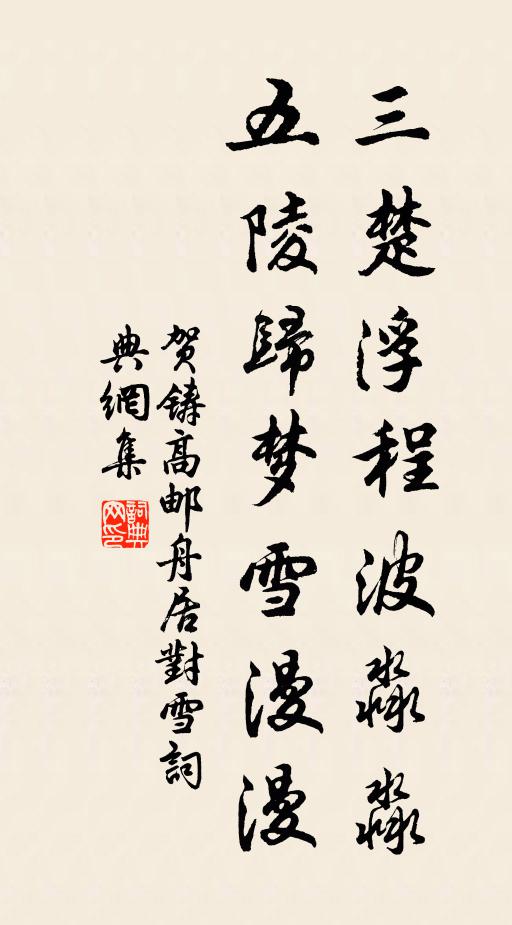 三楚浮程波淼淼
五陵歸梦雪漫漫
贺鑄高邮舟居對雪詞
典網集
詞典网印